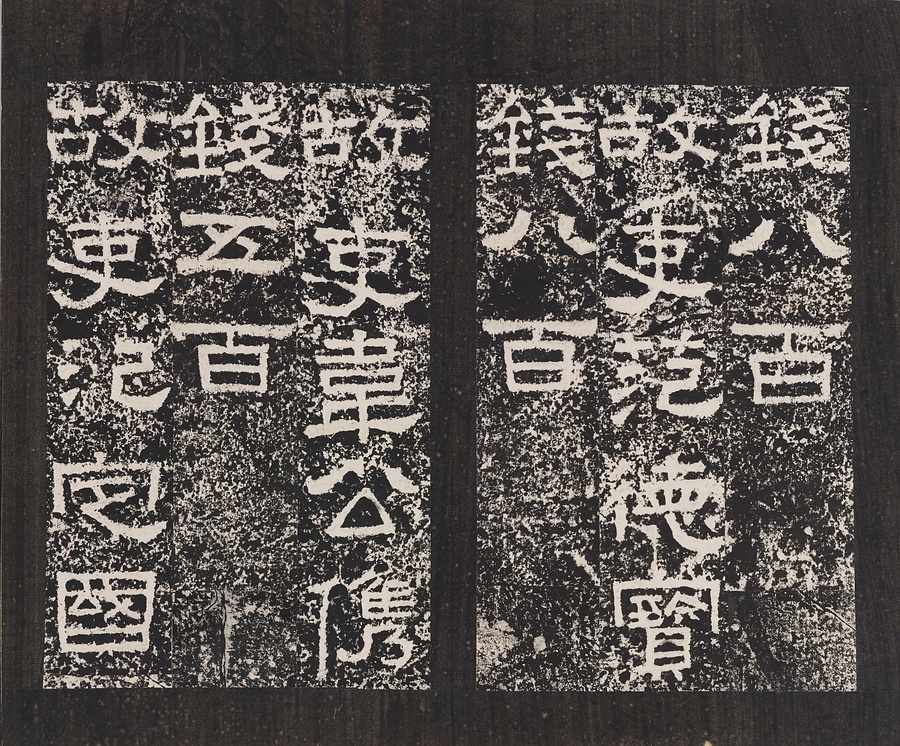 錢八百
故吏范德寶
錢八百
故吏韋公儁
錢五百
故吏氾定國